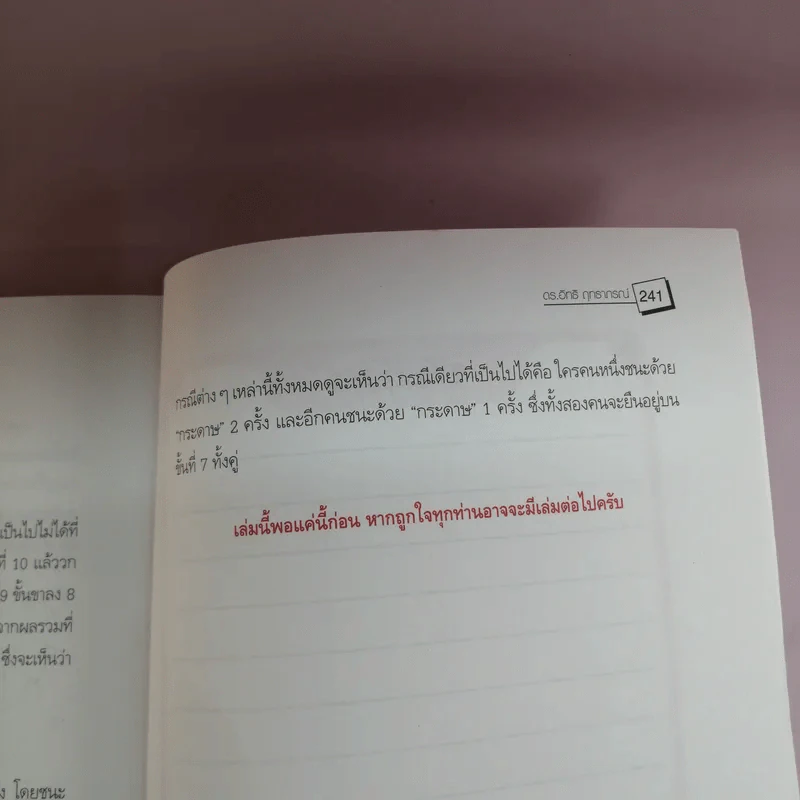 เป็นไปไม่ได้ที่
ที่ 10 แล้ววก
9 ขั้นขาลง 8
จากผลรวมที่
ซึ่งจะเห็นว่า
โดยชนะ
ดร.อิทธิ ฤทธาภรณ์ 241
กรณีต่าง ๆ เหล่านี้ทั้งหมดดูจะเห็นว่า กรณีเดียวที่เป็นไปได้คือ ใครคนหนึ่งชนะด้วย
“กระดาษ” 2 ครั้ง และอีกคนชนะด้วย “กระดาษ” 1 ครั้ง ซึ่งทั้งสองคนจะยืนอยู่บน
ขั้นที่ 7 ทั้งคู่
เล่มนี้พอแค่นี้ก่อน หากถูกใจทุกท่านอาจจะมีเล่มต่อไปครับ